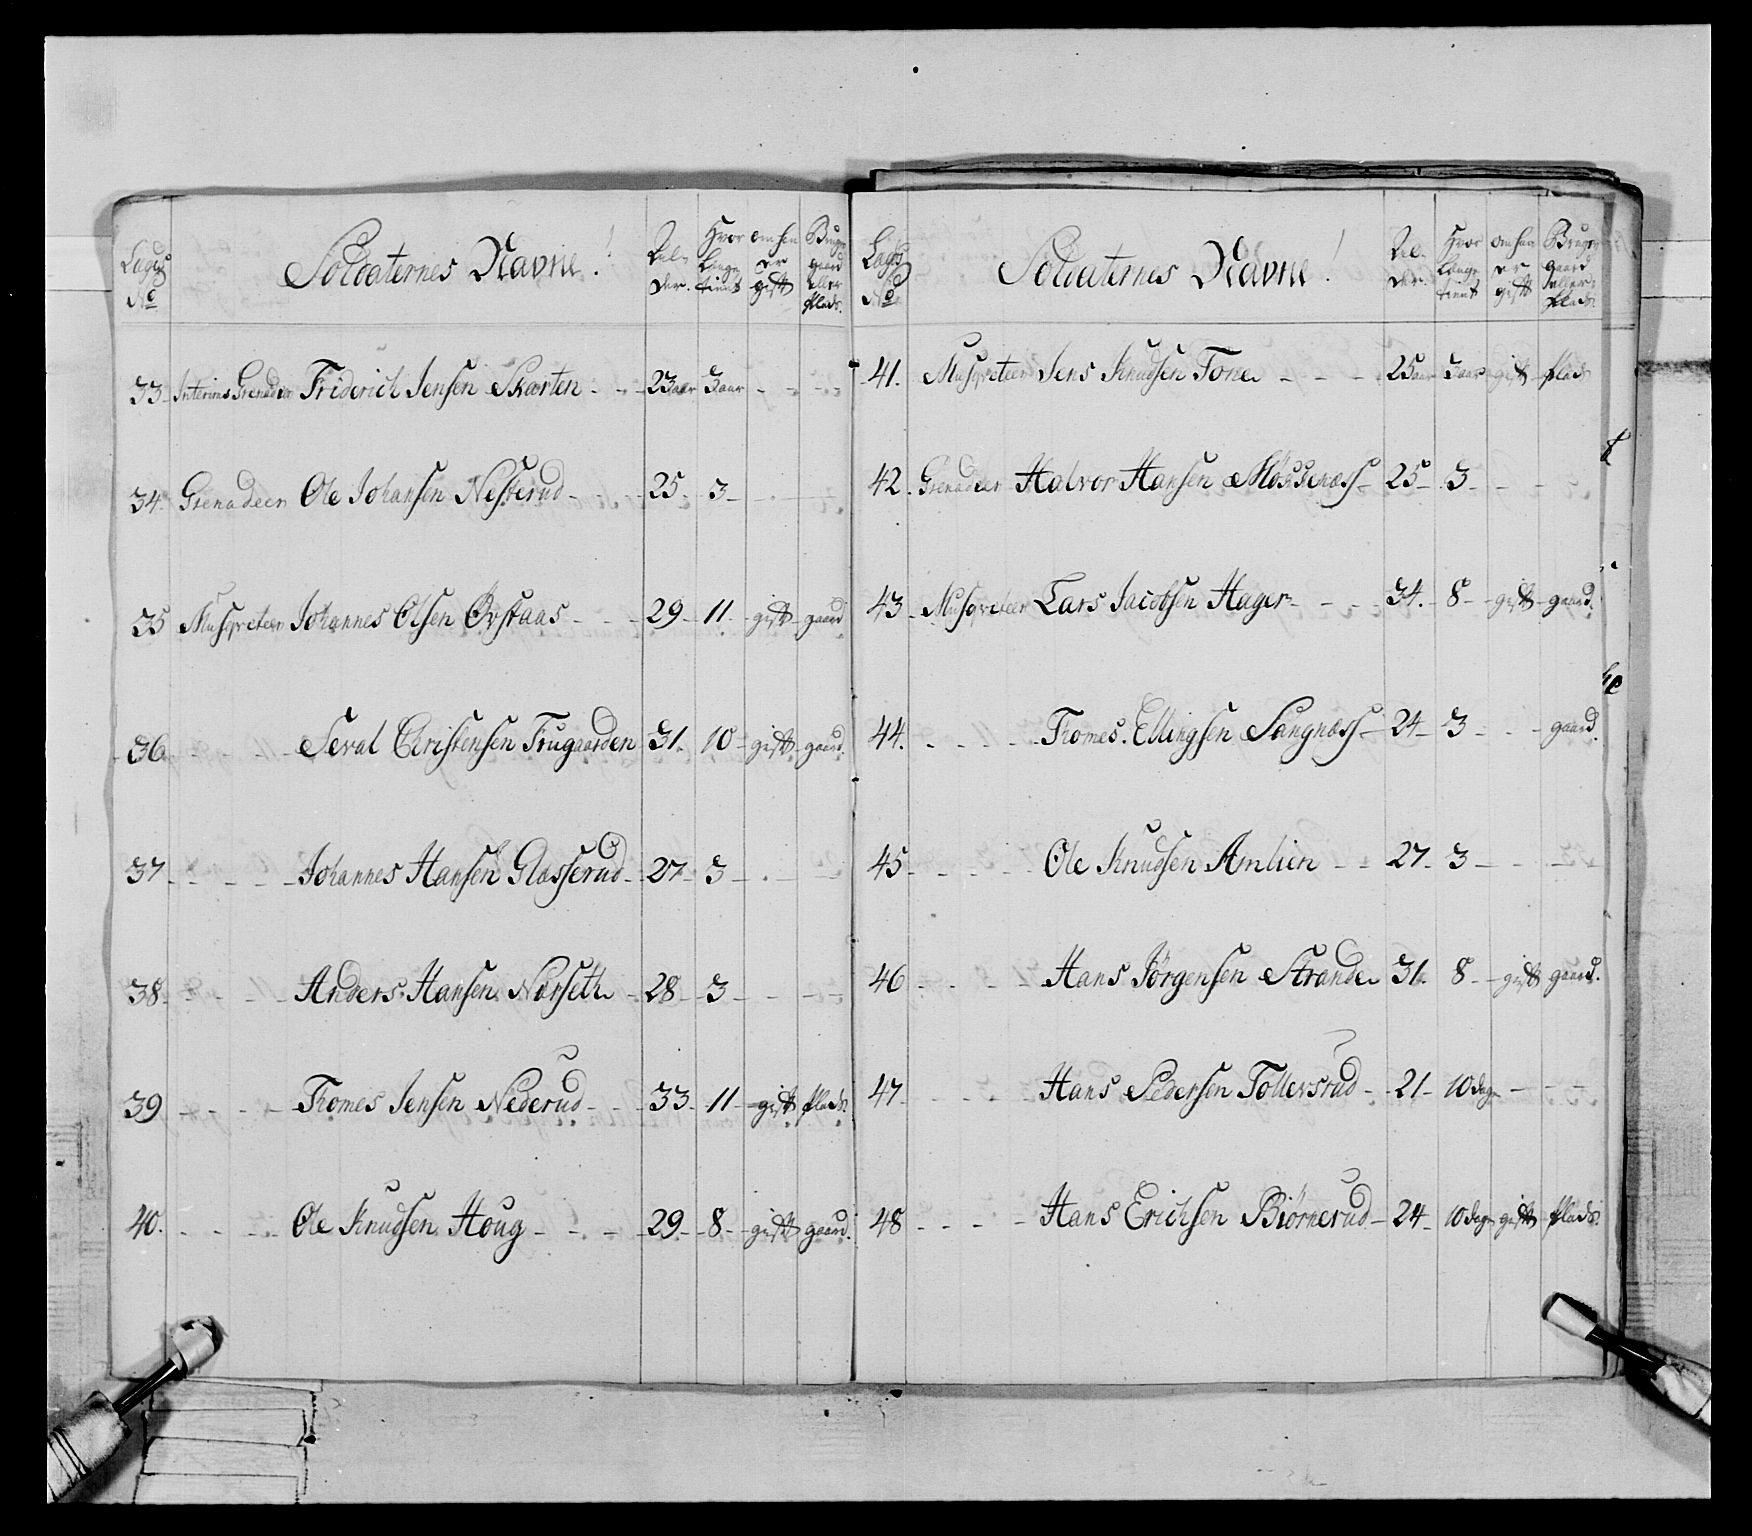 Lagds No
Soldaternes Navne!
Alder.
Hvor længe tient
om han er gift
Bruger gaard eller plads.
33 Interims Grenadeer Friderich Jensen Skarten 23 aar 3 aar
34 Grenadeer Ole Johansen Nesterud 25 3
35 Musqveteer Johannes Olsen Øvstaas 29 11 gift gaard
36 Seval Christensen Frugaarden 31. 10 gift gaard.
37 Johannes Hansen Glosserud 27 3
38 Anders Hansen Norseth 28 3
39 Thomes Jensen Nederud 33 11 gift plads.
40. Ole Knudsen Houg 29 8 gift gaard.
Lagds No
Soldaternes Navne!
Alder.
Hvor længe tient
om han er gift
Bruger gaard eller plads.
41. Musqveteer Jens Knudsen Tone 25 aar 3 aar gift plads
42. Grenadeer Halvor Hansen 25 3
43 Musqveteer Lars Jacobsen Hager 34. 8 gift gaard.
44. Thomes. Ellingsen Sangnæss 24 3 gaard.
45 Ole Knudsen Amlien 27 3
46 Hans Jørgensen Strande 31. 8 gift gaard.
47 Hans Pedersen Tollersrud 21 10 dage
48 Hans Erichsen Biørnerud 24 10 dage gift plads.